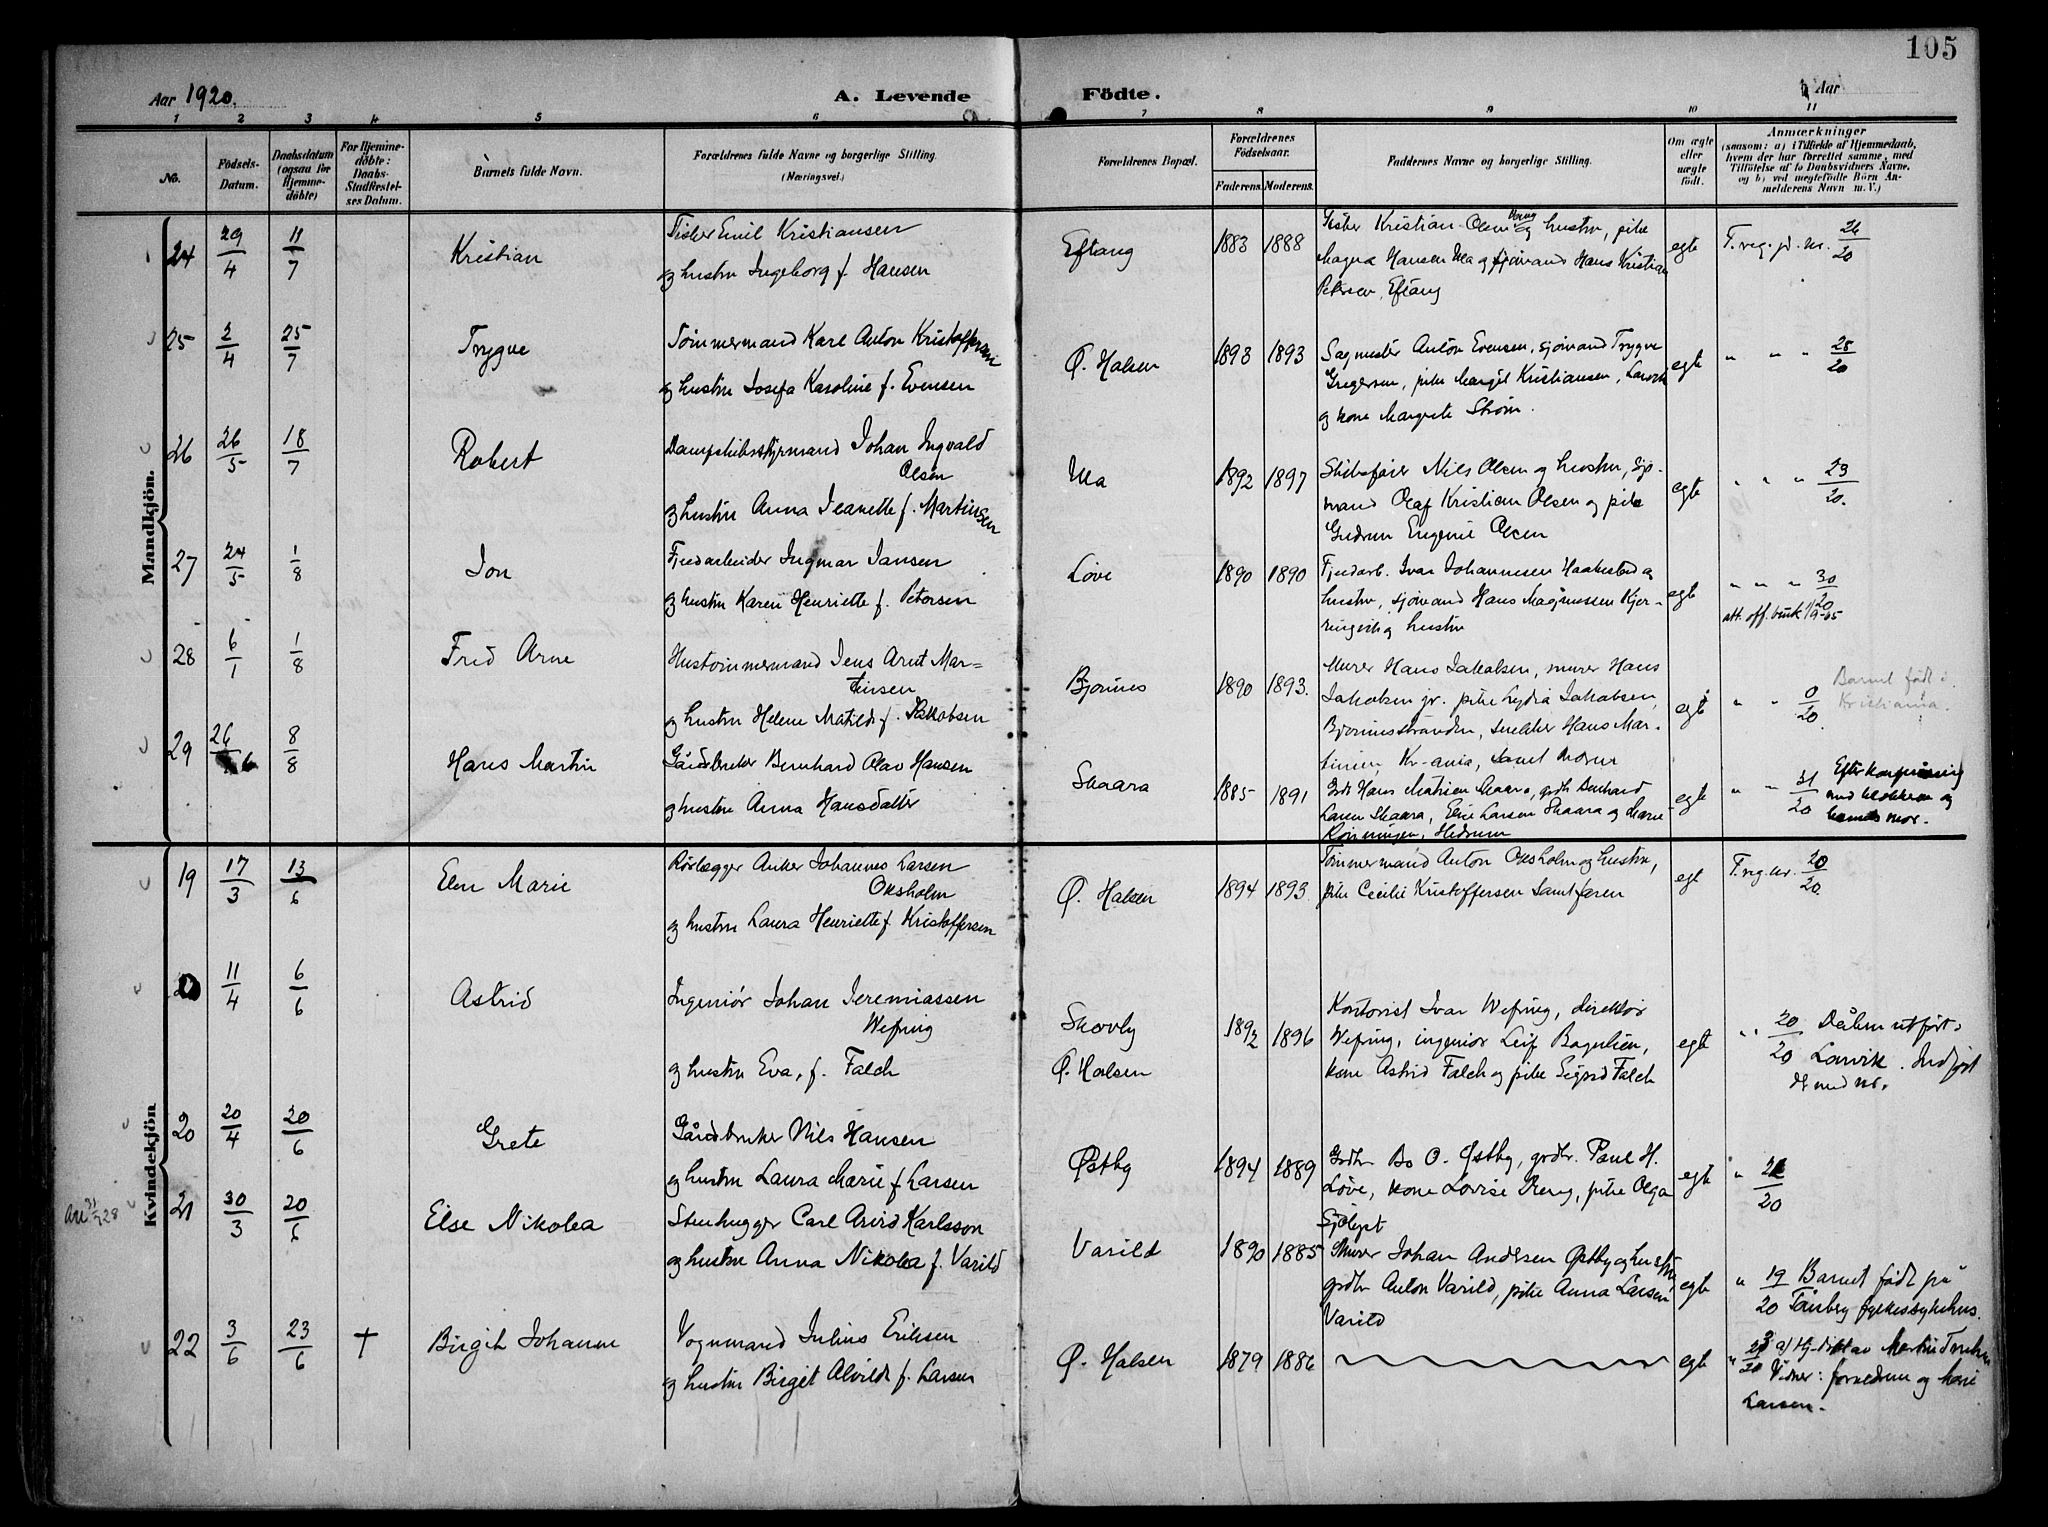 105
Aar 1920.
A. Levende
Födte.
Aar
1 2 3 4 5 6 7 8 9 10 11
No.
Födsels-
Datum.
Daabsdatum
(ogsaa for
Hjemme-
döbte)
For Hjemme-
döbte:
Daabs-
Stadfæstel-
ses Datum.
Barnets fulde Navn.
Forældrenes fulde Navne og borgerlige Stilling.
(Næringsvei.)
Forældrenes Bopæl.
Forældrenes
Födselsaar.
Faderens. Moderens.
Faddernes Navne og borgerlige Stilling.
Om ægte
eller
uægte
födt.
Anmærkninger
(saasom: a) i Tilfælde af Hjemmedaab,
hvem der har forrettet samme, med
Tilföielse af to Daabsvidners Navne,
og b) ved uægtefödte Börn An-
melderens Navn m. V.)
Mandkjön.
24 29/4 11/7 Kristian
Fisker Emil Kristiansen
og hustru Ingeborg f. Hansen
Eftang 1883 1888
Fisker Kristian Olsen og hustru, pike
Magna Hansen Ula og sjömand Hans Kristian
Petersen, Eftang
egte F. reg. jd. nr. 26/20
25 2/4 25/7 Trygve
Tömmermand Karl Anton Kristoffersen
og hustru Josefa Karoline f. Evensen
Ø. Halsen 1893 1893
Sagmester Anton Evensen, sjömand Trygve
Gregersen, pike Margit Kristiansen, Larvik
og kone Margrete Ström.
egte " " " 28/20
26 26/5 18/7 Robert
Dampskibsstyrmand Johan Ingvald
Olsen
og hustru Anna Jeanette f. Martinsen
Ula 1892 1897
Skibsförer Nils Olsen og hustru, sjö-
mand Olaf Kristian Olsen og pike
Gudrun Eugenie Olsen
egte " " " 29/20.
27 24/5 1/8 Jon
Fjeldarbeider Ingmar Jansen
og hustru Karen Henriette f. Petersen
Löve 1890 1890
Fjeldarb. Ivar Johannesen Haakestad og
hustru, sjömand Hans Magnussen Kjer-
ringvik og hustru
egte " " " 30/20
att. off. bruk 1/9-65
28 6/1 1/8 Fred Arne
Hustömmermand Jens Arnt Mar-
tinsen
og hustru Helene Matilde f. Jakobsen
Bjönnes 1890 1893.
Murer Hans Jakobsen, murer Hans
Jakobsen jr. pike Lydia Jakobsen,
Bjönnesstranden, snekker Hans Mar-
tinsen, Kr-ania, samt moren
egte " " 0/20 Barnet födt i
Kristiania.
29 26/6 8/8 Hans Martin
Gårdbruker Bernhard Olav Hansen
og hustru Anna Hansdatter
Skaara 1885 1891
Gdb Hans Matisen Skaara, gdb Bernhard
Larsen Skaara, Elise Larsen Skaara og Marie
Rönningen, Hedrum
egte " " 31/20 Efter konferering
med klokkeren og
barnets mor.
Kvindekjön
19 17/3 13/6 Elen Marie
Rörlægger Anker Johannes Larsen
Oksholm
og hustru Laura Henriette f. Kristoffersen
Ø. Halsen 1894 1893.
Tömmermand Anton Oksholm og hustru,
pike Cecilie Kristoffersen samt faren
egt F. reg. nr. 20/20
20 11/4 6/6 Astrid
Ingeniör Johan Jeremiassen
Wefring
og hustru Eva, f. Falch
Skovly
Ø. Halsen
1892 1896
Kontorist Ivar Wefring, direktör
Wefring, ingeniör Leif Bogulien,
kone Astrid Falch og pike Sigrid Falch
egte " 20/20 Dåben utfört i
Larvik. Indfört
der med nr.
20 20/4 20/6 Grete
Gårdbruker Nils Hansen
og hustru Laura Marie f. Larsen
Østby 1894 1889
Gdbr Bo O. Østby, grdbr. Paul H.
Löve, kone Lovise Berg, pike Olga
Sjölyst
egte " 21/20
Att 31/7 28
21 30/3 20/6 Else Nikolea
Stenhugger Carl Arvid Karlsson
og hustru Anna Nikolea f. Varild
Varild 1890 1885
Murer Johan Andersen Østby og hustru
grdbr Anton Varild, pike Anna Larsen
Varild
egte " 19/20 Barnet födt på
Tönsberg fylkessykehus.
22 3/6 23/6 † Birgit Johanne
Vognmand Julius Eriksen
og hustru Birgit Alvilde f. Larsen
Ø. Halsen 1879 1886
egte " 23/20 a) Hj-döbt av Martin
Vidner: foreldrene og Marie
Larsen.